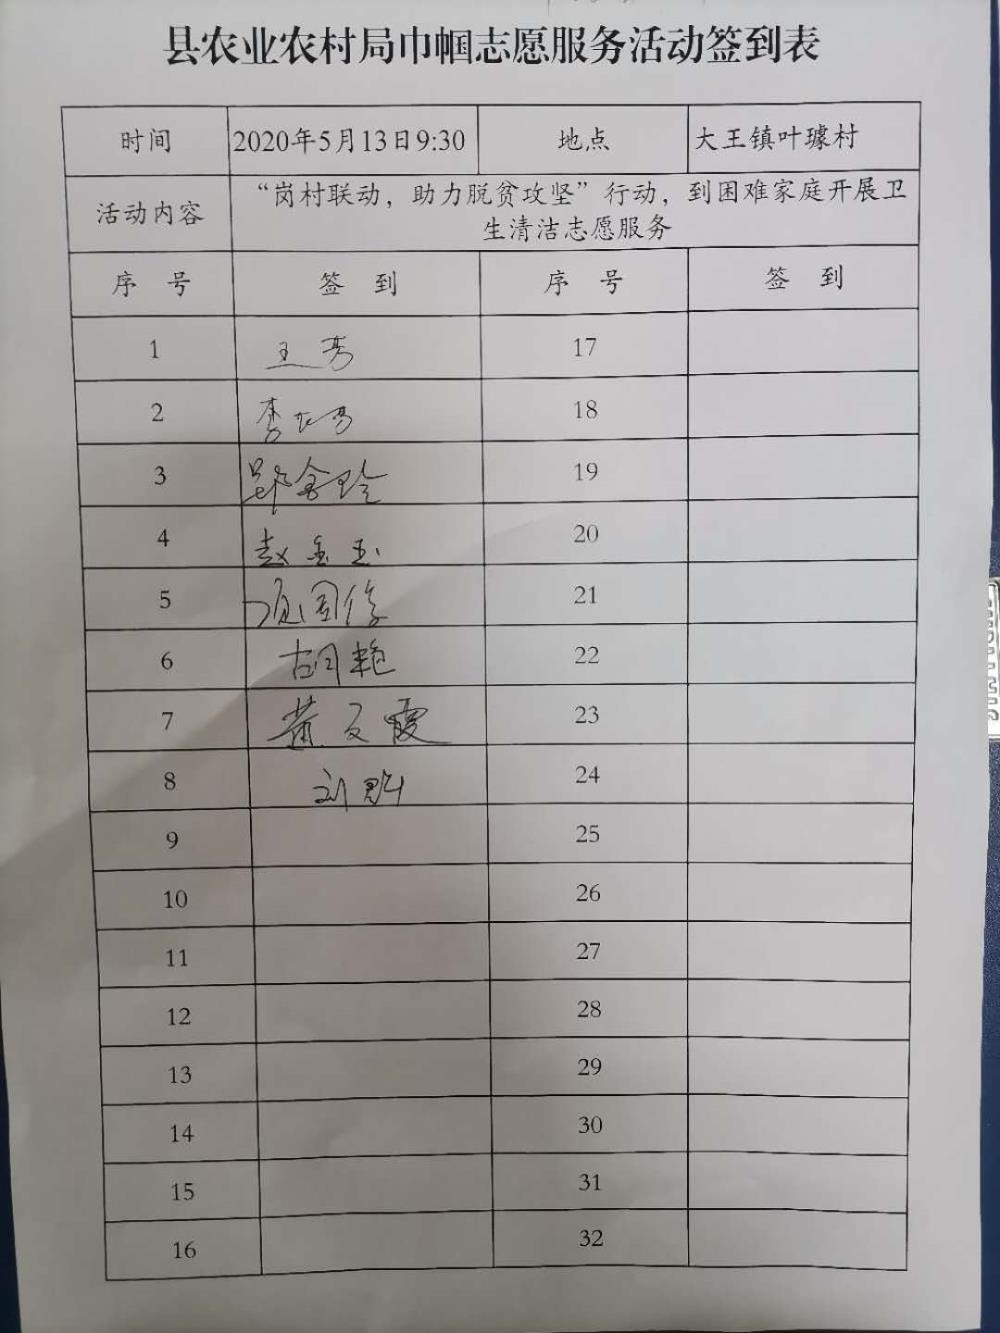 县农业农村局巾帼志愿服务活动签到表
时间 2020年5月13日9:30 地点 大王镇叶璩村
活动内容 “岗村联动，助力脱贫攻坚”行动，到困难家庭开展卫
生清洁志愿服务
序 号 签 到 序 号 签 到
1 王芳 17
2 18
3 金玲 19
4 赵金玉 20
5 21
6 胡艳 22
7 黄 霞 23
8 刘 24
9 25
10 26
11 27
12 28
13 29
14 30
15 31
16 32